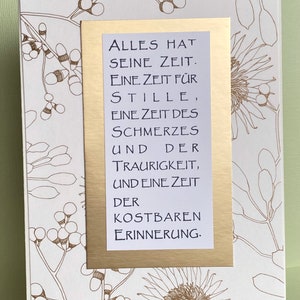 ALLES HAT
SEINE ZEIT.
EINE ZEIT FÜR
STILLE,
EINE ZEIT DES
SCHMERZES
UND DER
TRAURIGKEIT,
UND EINE ZEIT
DER
KOSTBAREN
ERINNERUNG.